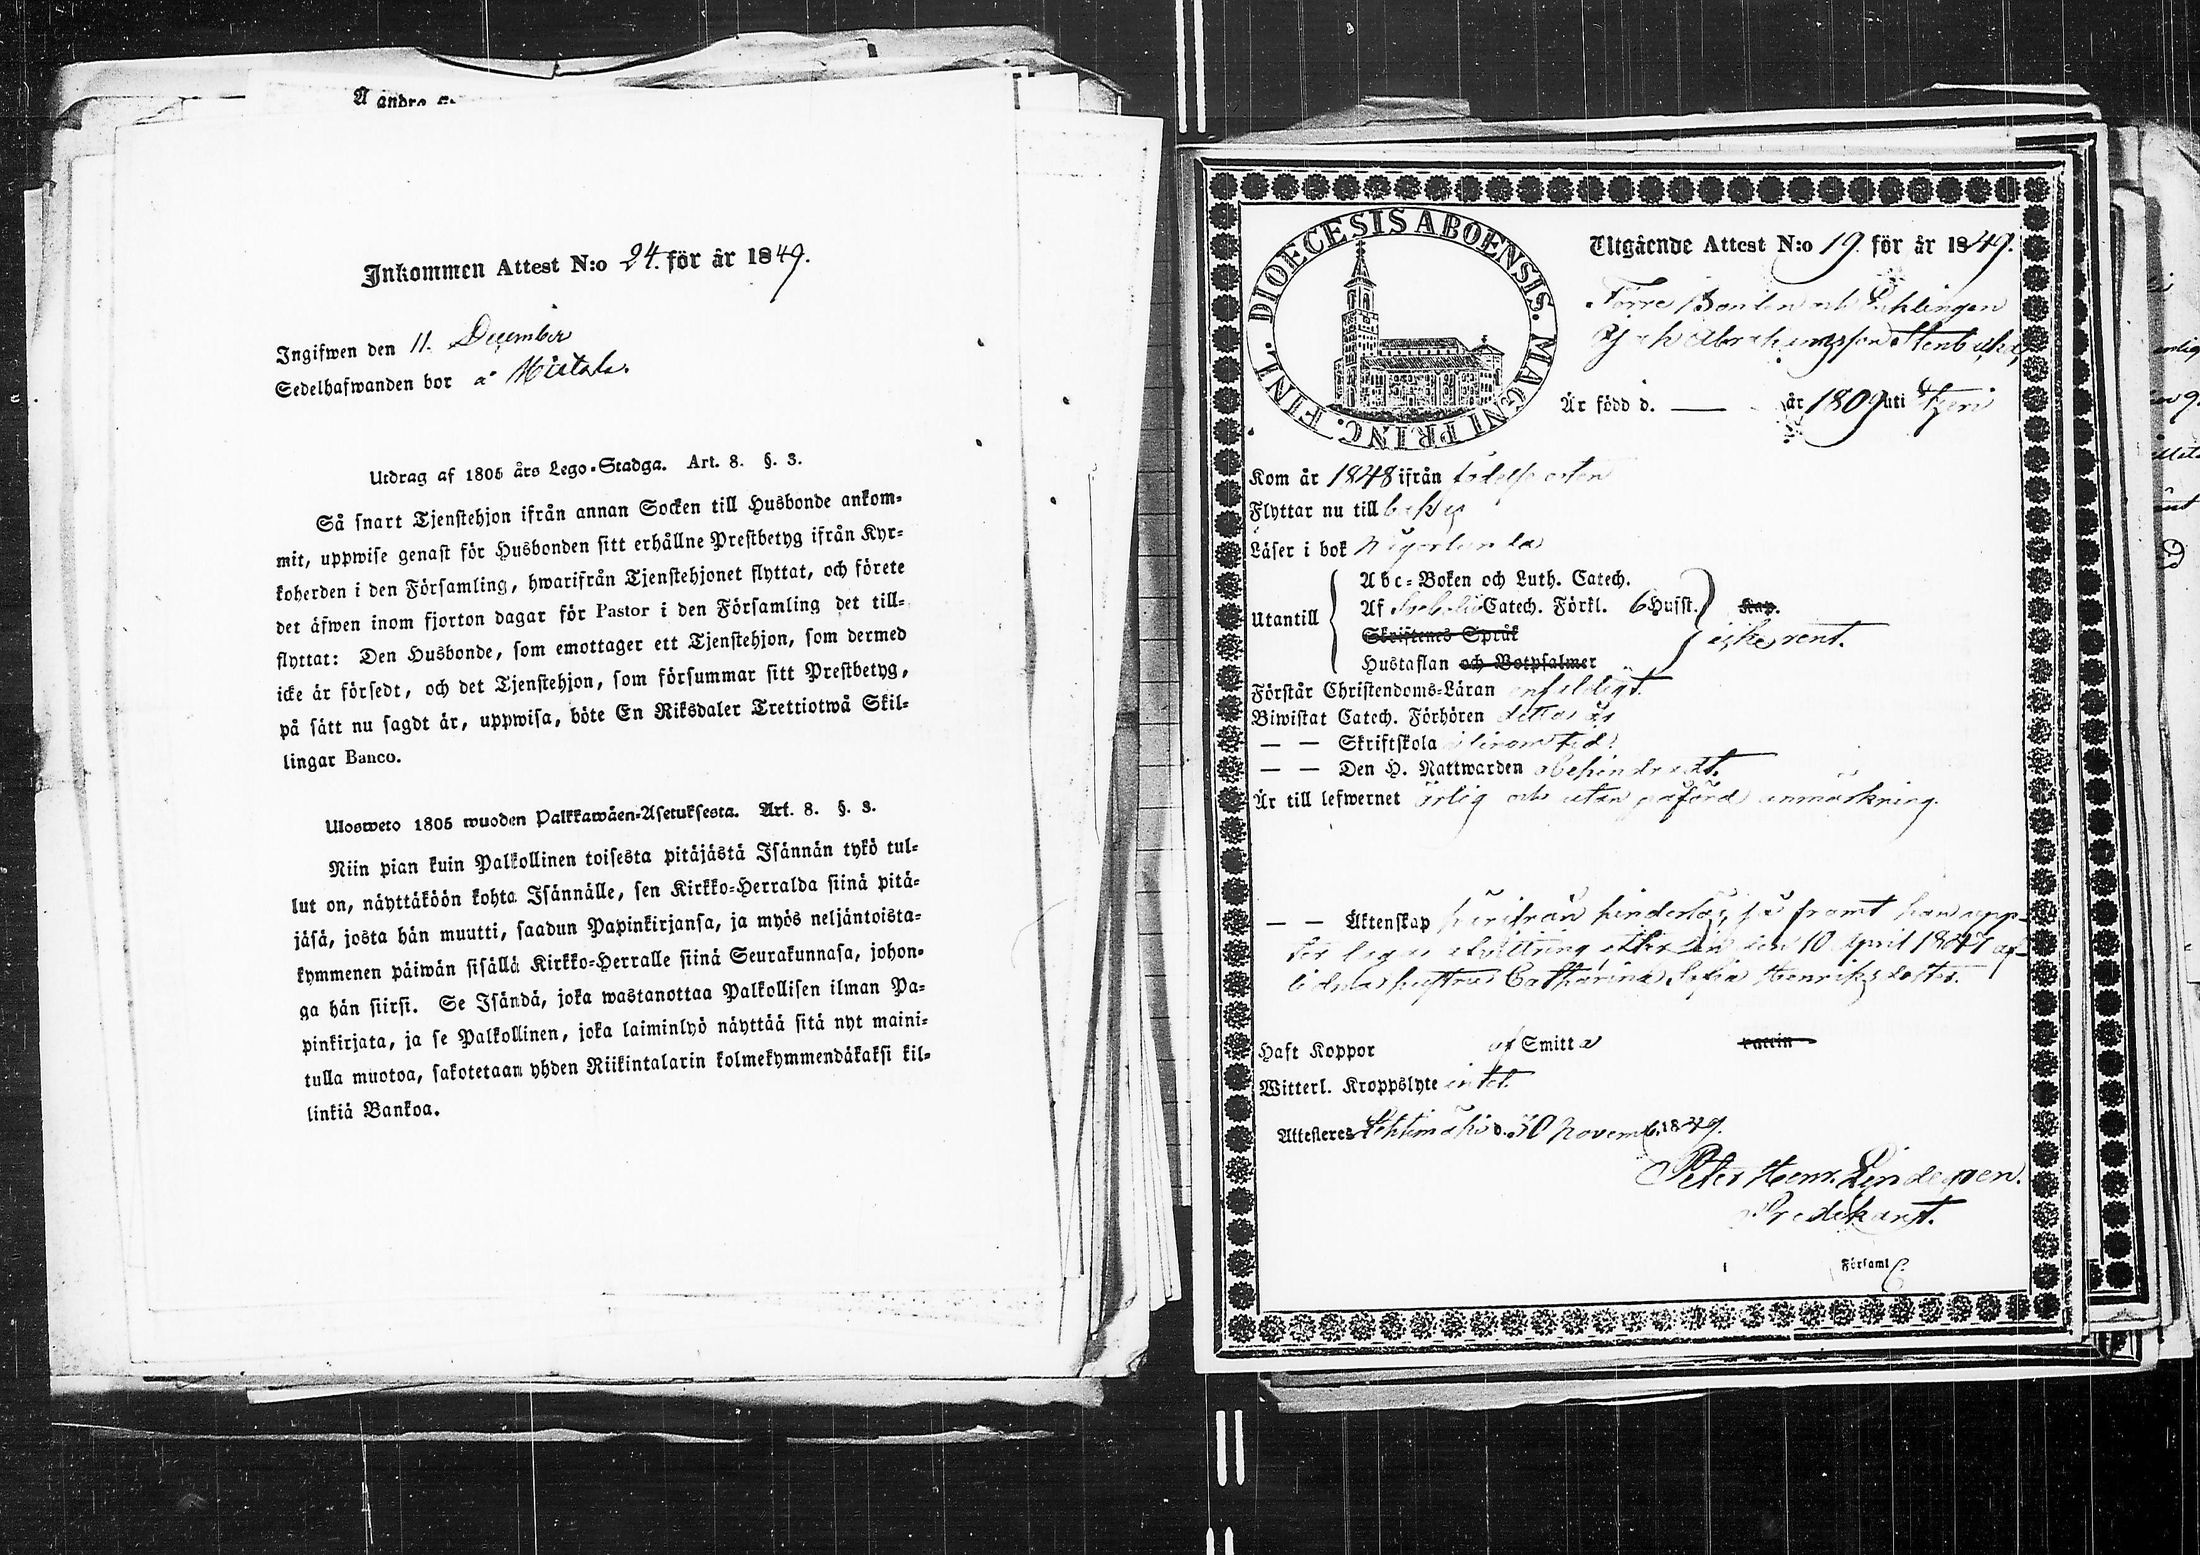 A andra
Inkommen Attest N:o 24. för år 1849.
Ingifwen den 11. December
Sedelhafwanden bor å Mietala.
Utdrag af 1805 års Lego-Stadga. Art. 8. §. 3.
Så snart Tjenstehjon ifrån annan Socken till Husbonde ankom-
mit, uppwise genast för Husbonden sitt erhållne Prestbetyg ifrån Kyr-
koherden i den Församling, hwarifrån Tjenstehjonet flyttat, och förete
det äfwen inom fjorton dagar för Pastor i den Församling det till-
flyttat: Den Husbonde, som emottager ett Tjenstehjon, som dermed
icke är försedt, och det Tjenstehjon, som försummar sitt Prestbetyg,
på sätt nu sagdt är, uppwisa, böte En Riksdaler Trettiotwå Skil-
lingar Banco.
Ulosweto 1805 wuoden Palkkawäen-Asetuksesta. Art. 8. §. 3.
Niin pian kuin Palkollinen toisesta pitäjästä Isännän tykö tul-
lut on, näyttäköön kohta Isännälle, sen Kirkko-Herralda siinä pitä-
jäsä, josta hän muutti, saadun Papinkirjansa, ja myös neljäntoista-
kymmenen päiwän sisällä Kirkko-Herralle siinä Seurakunnasa, johon-
ga hän siirsi. Se Isändä, joka wastanottaa Palkollisen ilman Pa-
pinkirjata, ja se Palkollinen, joka laiminlyö näyttää sitä nyt maini-
tulla muotoa, sakotetaan yhden Riikintalarin kolmekymmendäkaksi kil-
linkiä Bankoa.
DIOECESIS ABOENSIS. MAGNI PRINC. FINL.
Utgående Attest N:o 19. för år 1849.
Förre Bonden och Enklingen
Abrahamsson
Är född d. — år 1809 uti
Kom år 1848 ifrån födelse orten
Flyttar nu till
Läser i bok någorlunda
Utantill
Abc-Boken och Luth. Catech.
Af Catech. Förkl. 6 Husst. Kap.
Skriftenes Språk
icke rent.
Hustaflan och Botpsalmer
Förstår Christendoms-Läran enfaldigt.
Biwistat Catech. Förhören detta år
— — Skriftskola i sinom tid.
— — Den H. Nattwarden obehindradt.
Är till lefwernet ärlig och utan påförd anmärkning.
— — Äktenskap härifrån hinderlös, så framt han upp-
den 10 April 1847 af-
lidna hustrun Catharina Sofia Henriksdotter.
Haft Koppor af Smitta vaccin
Witterl. Kroppslyte intet
Attesteres d. 30 Novemb. 1849.
Peter Henr. Lindegren.
Predikant.
i Församl.